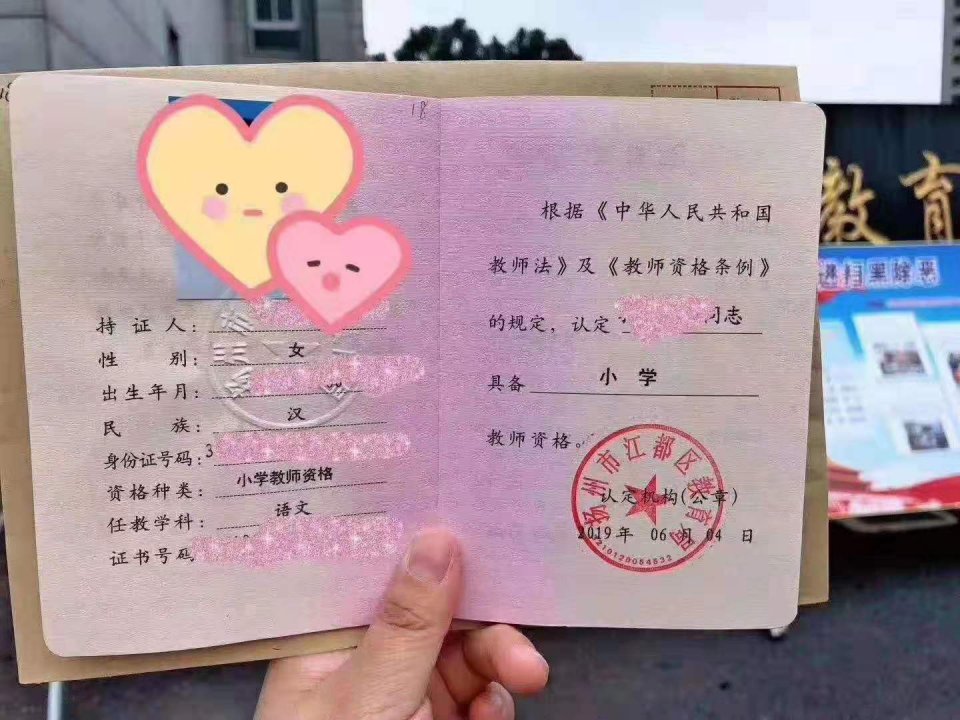 18
持证人：
性别：女
出生年月：
民族：汉
身份证号码：3
资格种类：小学教师资格
任教学科：语文
证书号码
根据《中华人民共和国
教师法》及《教师资格条例》
的规定，认定 同志
具备 小学
教师资格。
扬州市江都区教育局
认定机构(公章)
2019年 06月 04日
教育
扫黑除恶